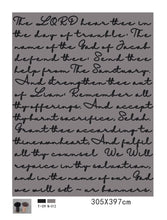 The LORD hear thee in
the day of trouble. The
name of the God of Jacob
defend thee. Send thee
help from The Sanctuary.
And strengthen thee out
of Zion. Remember all
thy offerings. And accept
thy burnt sacrifice. Selah.
Grant thee according to
thineownheart. And fulfill
all thy counsel. We Will
rejoice in thy salvation,
and in the name of our God
we will set
305X397cm